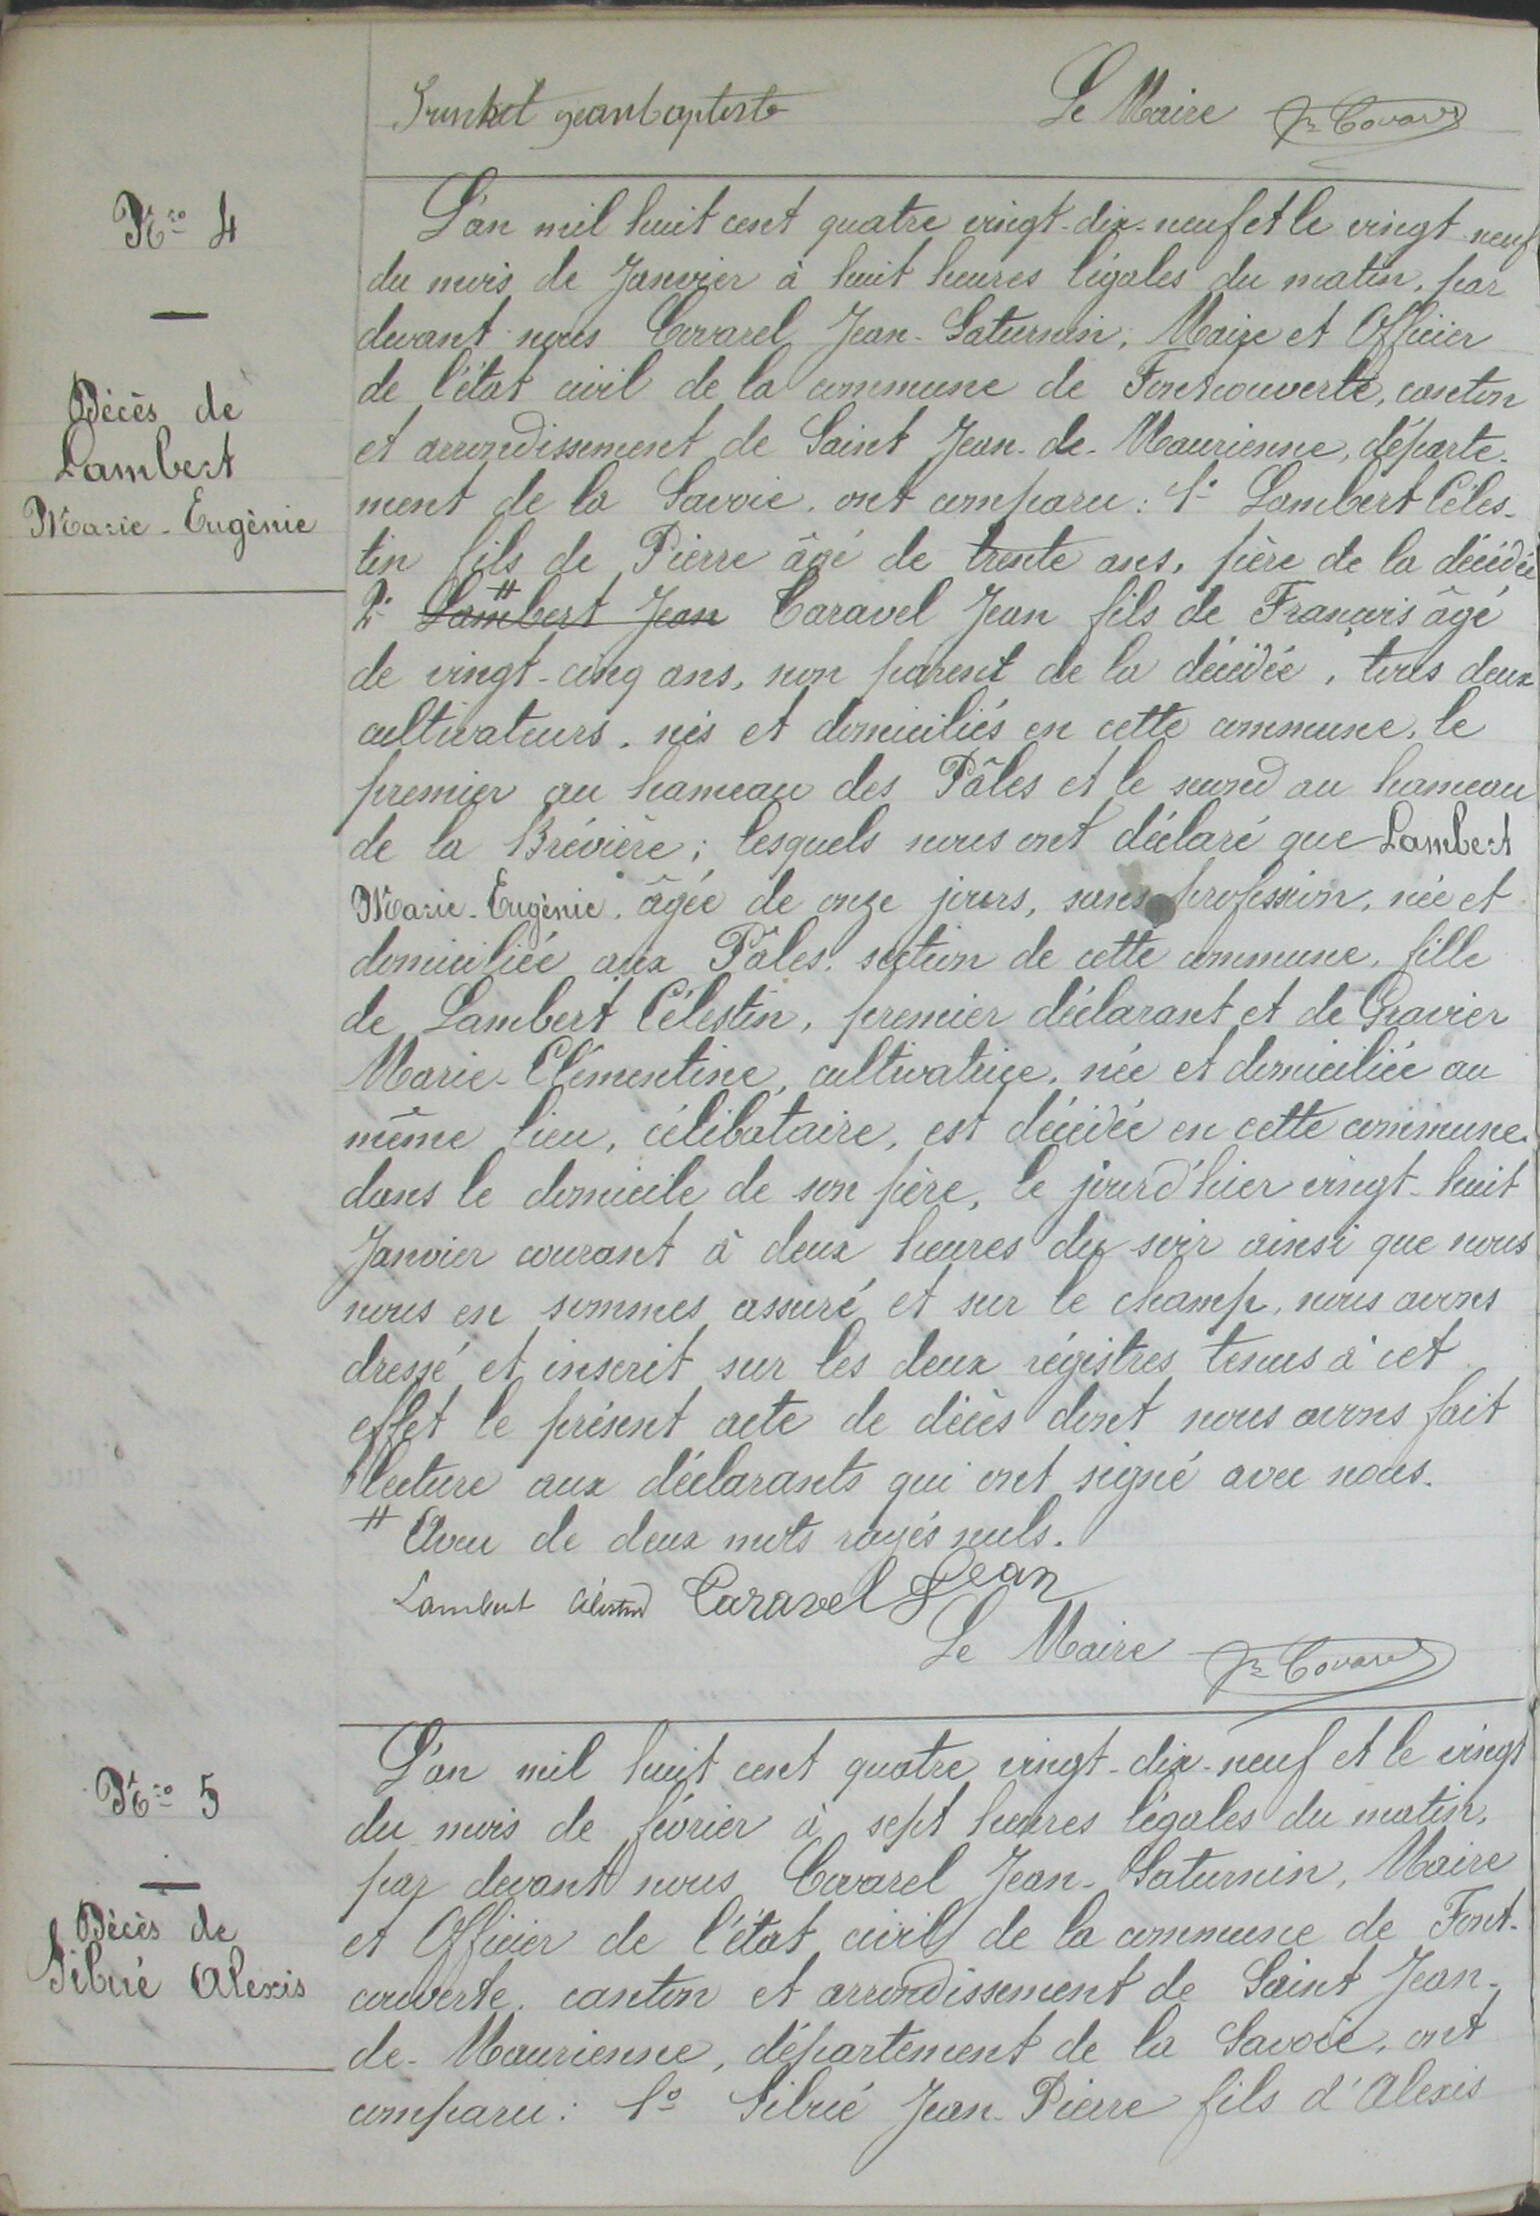 Trunket jeanbaptiste Le Maire Jn Covarel
Nro 4
Décès de
Lambert
Marie-Eugènie
L'an mil huit cent quatre vingt-dix-neuf et le vingt-neuf
du mois de Janvier à huit heures légales du matin, par
devant nous Covarel Jean-Saturnin, Maire et Officier
de l'état civil de la commune de Fontcouverte, canton
et arrondissement de Saint Jean-de-Maurienne, départe-
ment de la Savoie, ont comparu: 1° Lambert Céles-
tin fils de Pierre âgé de trente ans, père de la décédée
2° # Lambert Jean Caravel Jean fils de François âgé
de vingt-cinq ans, non parent de la décédée, tous deux
cultivateurs, nés et domiciliés en cette commune, le
premier au hameau des Pâles et le second au hameau
de la Brévière; lesquels nous ont déclaré que Lambert
Marie-Eugènie, âgée de onze jours, sans profession, née et
domiciliée aux Pâles, section de cette commune, fille
de Lambert Célestin, premier déclarant et de Gravier
Marie-Clémentine, cultivatrice, née et domiciliée au
même lieu, célibataire, est décédée en cette commune
dans le domicile de son père, le jour d'hier vingt-huit
Janvier courant à deux heures du soir ainsi que nous
nous en sommes assuré et sur le champ, nous avons
dressé et inscrit sur les deux régistres tenus à cet
effet le présent acte de décès dont nous avons fait
lecture aux déclarants qui ont signé avec nous.
# Aveu de deux mots rayés nuls.
Lambert Célestin Caravel Jean
Le Maire Jn Covarel
Nro 5
Décès de
Sibué Alexis
L'an mil huit cent quatre vingt-dix-neuf et le vingt
du mois de février à sept heures légales du matin,
par devant nous Covarel Jean-Saturnin, Maire
et Officier de l'état civil de la commune de Font-
couverte, canton et arrondissement de Saint Jean-
de-Maurienne, département de la Savoie, ont
comparu: 1° Sibué Jean-Pierre fils d'Alexis